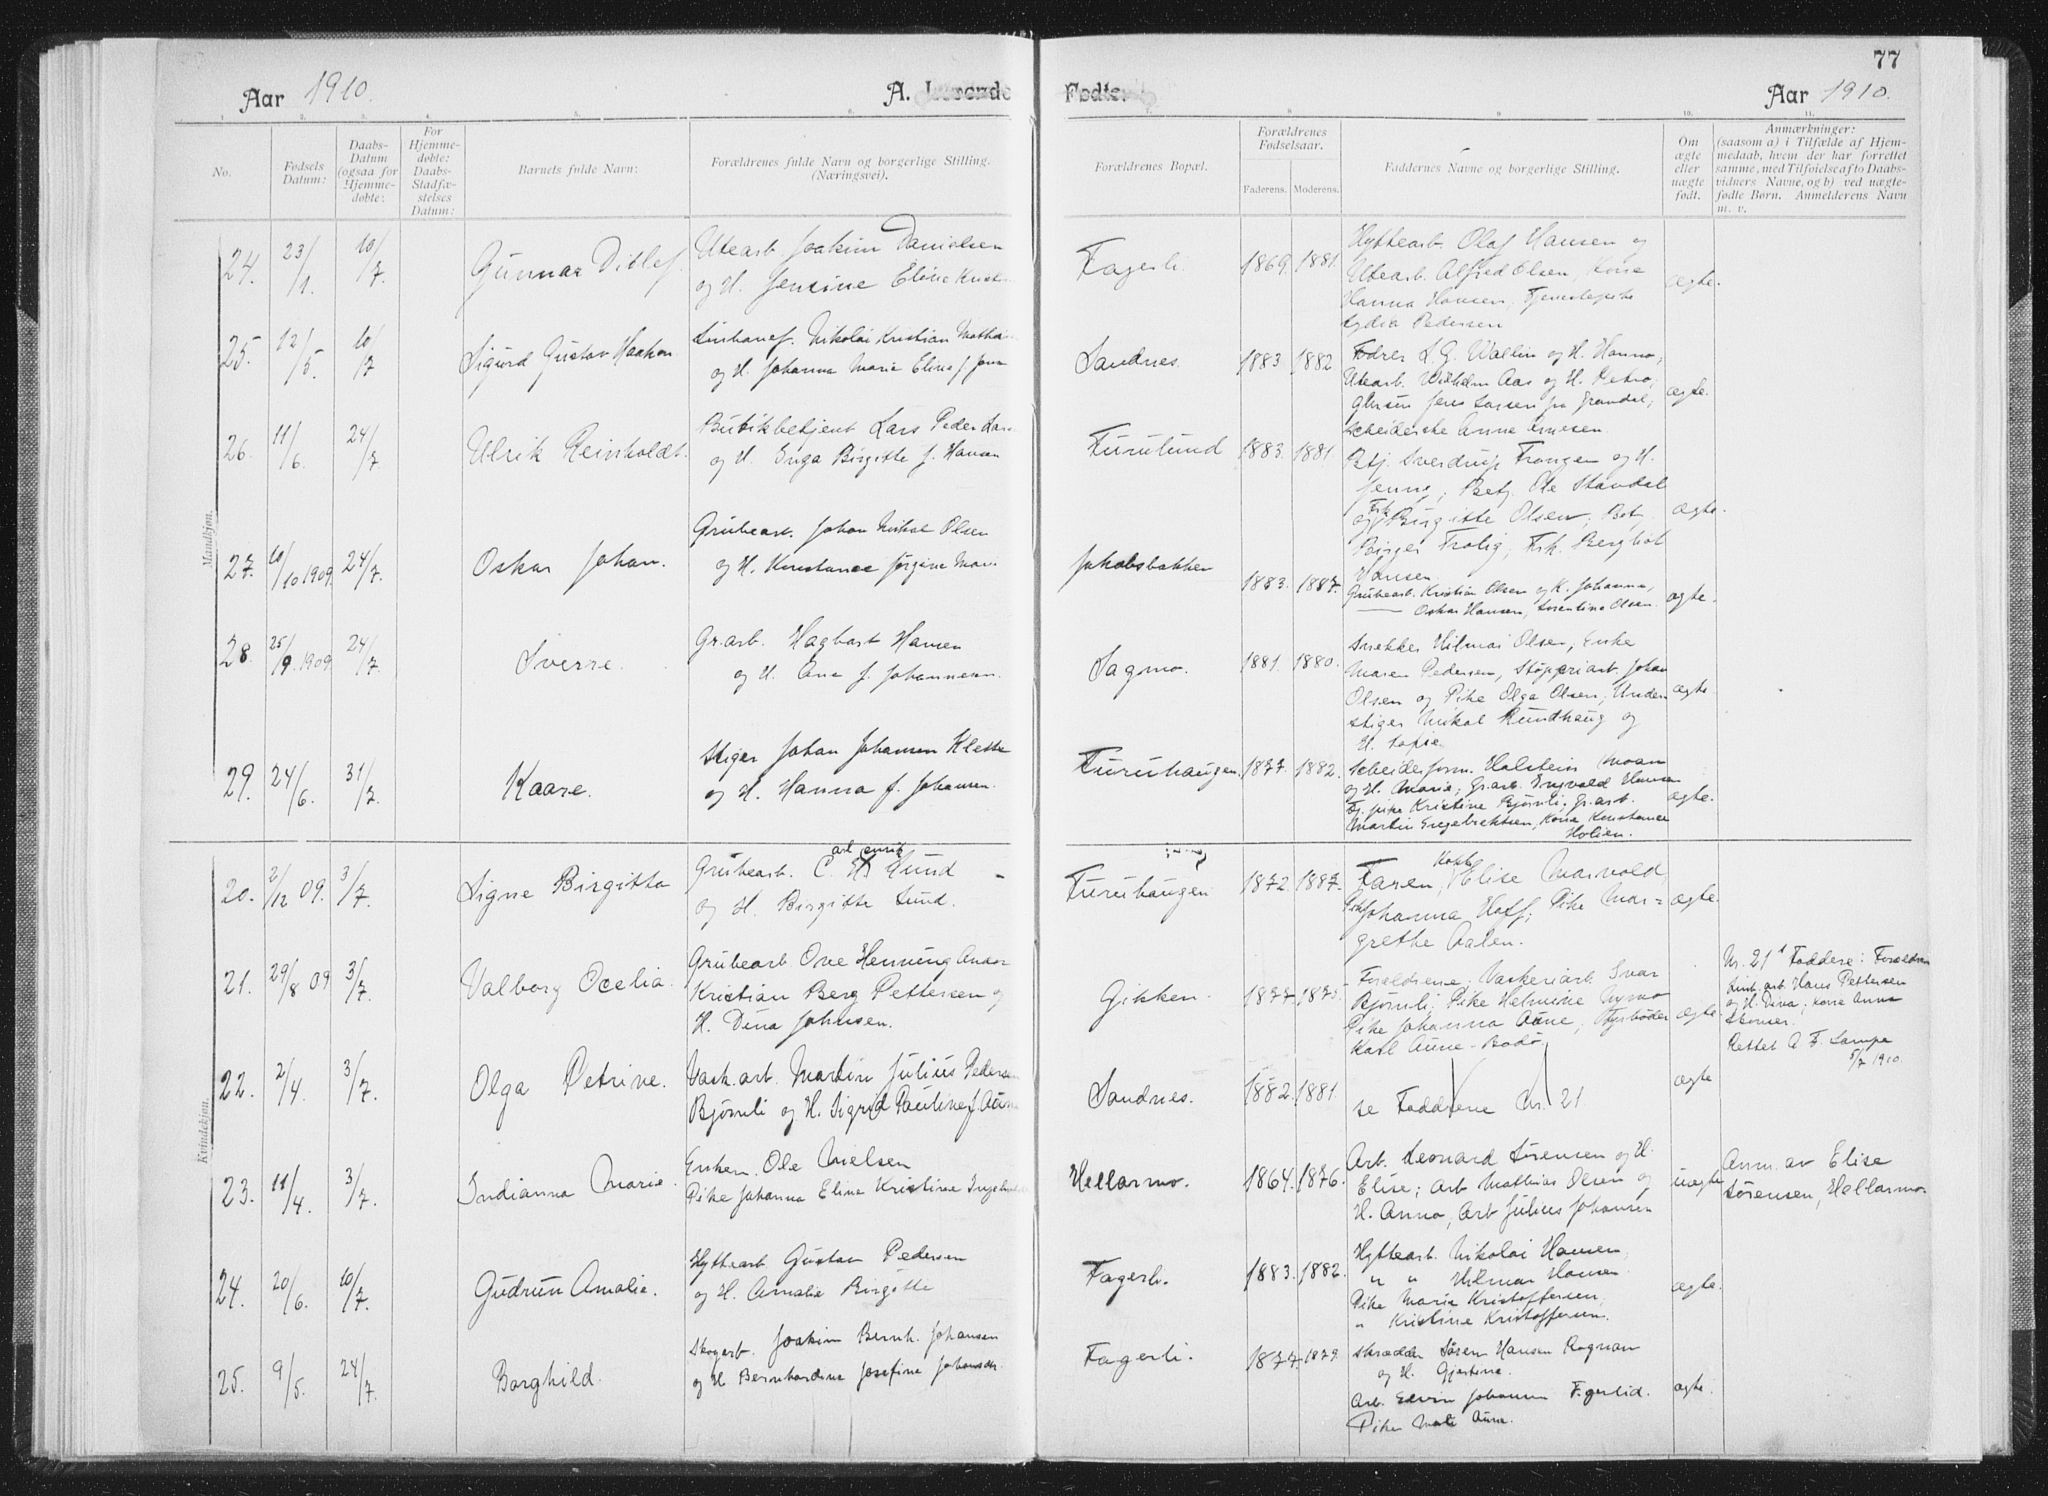 77
Aar 1910.
A. Levende
Fødte.
Aar 1910.
1. 2. 3. 4. 5. 6. 7. 8 9 10. 11.
No.
Fødsels
Datum:
Daabs-
Datum
(ogsaa for
Hjemme-
døbte:
For
Hjemme-
døbte:
Daabs-
Stadfæ-
stelses
Datum:
Barnets fulde Navn:
Forældrenes fulde Navn og borgerlige Stilling.
(Næringsvei).
Forældrenes Bopæl.
Forældrenes
Fødselsaar.
Faderens. Moderens.
Faddernes Navne og borgerlige Stilling.
Om
ægte
eller
uægte
født.
Anmærkninger:
(saasom a) i Tilfælde af Hjem-
medaab, hvem der har forrettet
samme, med Tilføielse af to Daabs-
vidners Navne, og b) ved uægte-
fødte Børn. Anmelderens Navn
m. v.
Mandkjøn.
24. 23/1. 10/7. Gunnar Ditlef.
Utearb. Joakim Danielsen
og H. Jensine Eline
Fagerli. 1869. 1881.
Hyttearb. Olaf Hansen og
Utearb. Alfred Olsen, Kone
Hanna Hansen, Tjenestepike
Lydia Pedersen
ægte.
25. 12/5. 10/7 Sigurd Gustav Haakon
Nikolai Kristian
og H. Johanna Marie Elina f.
Sandnes. 1883. 1882
L. G. Wallin og H. Hanna,
Utearb. Wilhelm Aas og H. Petra,
Jens Larsen
Scheiderske Anna
ægte.
26. 11/6. 24/7 Ulrik Reinholdt.
Butikbetjent Lars Peder
og H. Inga Birgitte f. Hansen
Furulund 1883. 1881.
Betj. Sverdrup Frangen og H.
Jenny, Betj. Ole Standal
og Frk. Birgitte Olsen, Bet.
Birger Frolig, Frk. Bergliot
Hansen
ægte.
27. 10/10 1909. 24/7. Oskar Johan.
Grubearb. Johan Nikal Olsen
og H. Konstance Jørgine
Jakobsbakken 1883. 1887.
Grubearb. Kristian Olsen og H. Johanna,
Oskar Hansen, Serentine Olsen.
ægte.
28. 25/9. 1909. 24/7. Sverre.
Gr.arb. Hagbart Hansen
og H. Ane f. Johannesen.
Sagmo. 1881. 1880.
Snekker Hilmar Olsen, Enke
Maren Pedersen, Støperiarb. Johan
Olsen og Pike Olga Olsen, Under-
stiger Nikal Rundhaug og
H. Sofie
ægte.
29. 24/6. 31/7. Kaare.
Stiger Johan Johansen Klette
og H. Hanna f. Johansen.
Furuhaugen. 1877. 1882.
Scheiderform. Halstein Moan
og H. Marie, Gr.arb. Ingvald Hansen
Tj. pike Kristine Bjørnli, Gr.arb.
Martin Engebrektsen, Kone Konstance
Holien.
ægte.
Kvindekjøn.
20. 2/12 09. 3/7. Signe Birgitta
Grubearb. Carl Henrik Lund
og H. Birgitte Lund.
Furuhaugen 1872. 1887.
Faren, Kokk. Elise Marvold,
Johanna Hoff, Pike Mar=
grethe Aalen.
ægte.
21. 29/8 09 3/7. Valborg Ocelia.
Grubearb Ove Henning
Kristian Berg Pettersen og
H. Dina Johnsen.
Gikken. 1877.
Forældrene, Vaskeriarb. Ivar
Bjørnli, Pike Helmine Nymo
Pike Johanna Aune, Fyrbøder
Karl Aune - Bodø.
ægte
Nr. 21 Faddere: Forældrene
Hans Pettersen
og H. Dina, Kone Anna
Rettet A F. Lampe
5/7 1910.
22. 2/4. 3/7. Olga Petrine.
Vask.arb. Martin Julius Pedersen
Bjørnli og H. Sigrid Pauline f. Aune
Sandnes. 1882. 1881.
se Fadderne Nr. 21
ægte
23. 11/4. 3/7. Indianna Marie.
Enkem. Ole Nielsen
Pike Johanna Elina Kristine
Hellarmo. 1864. 1876.
Arb. Leonard Sørensen og H.
Elise; Arb Mathias Olsen og
H. Anna, Arb Julius Johansen
uægte
Anm. av Elise
Sørensen, Hellarmo.
24. 20/6. 10/7. Gudrun Amalie.
Hyttearb Gustav Pedersen
og H. Amalie Birgitte
Fagerli. 1883. 1882.
Hyttearb. Nikolai Hansen,
" " Hilmar Hansen
Pike Marie Kristoffersen,
" Kristine Kristoffersen.
ægte.
25. 9/5. 24/7. Borghild.
Skogarb. Joakim Bernh. Johansen
og H Bernhardine Josefine
Fagerli. 1874. 1879.
Skrædder Søren Hansen Rognan
og H. Gjertine.
Arb. Edvin Johansen Fagerlid.
Pike Aune.
ægte.